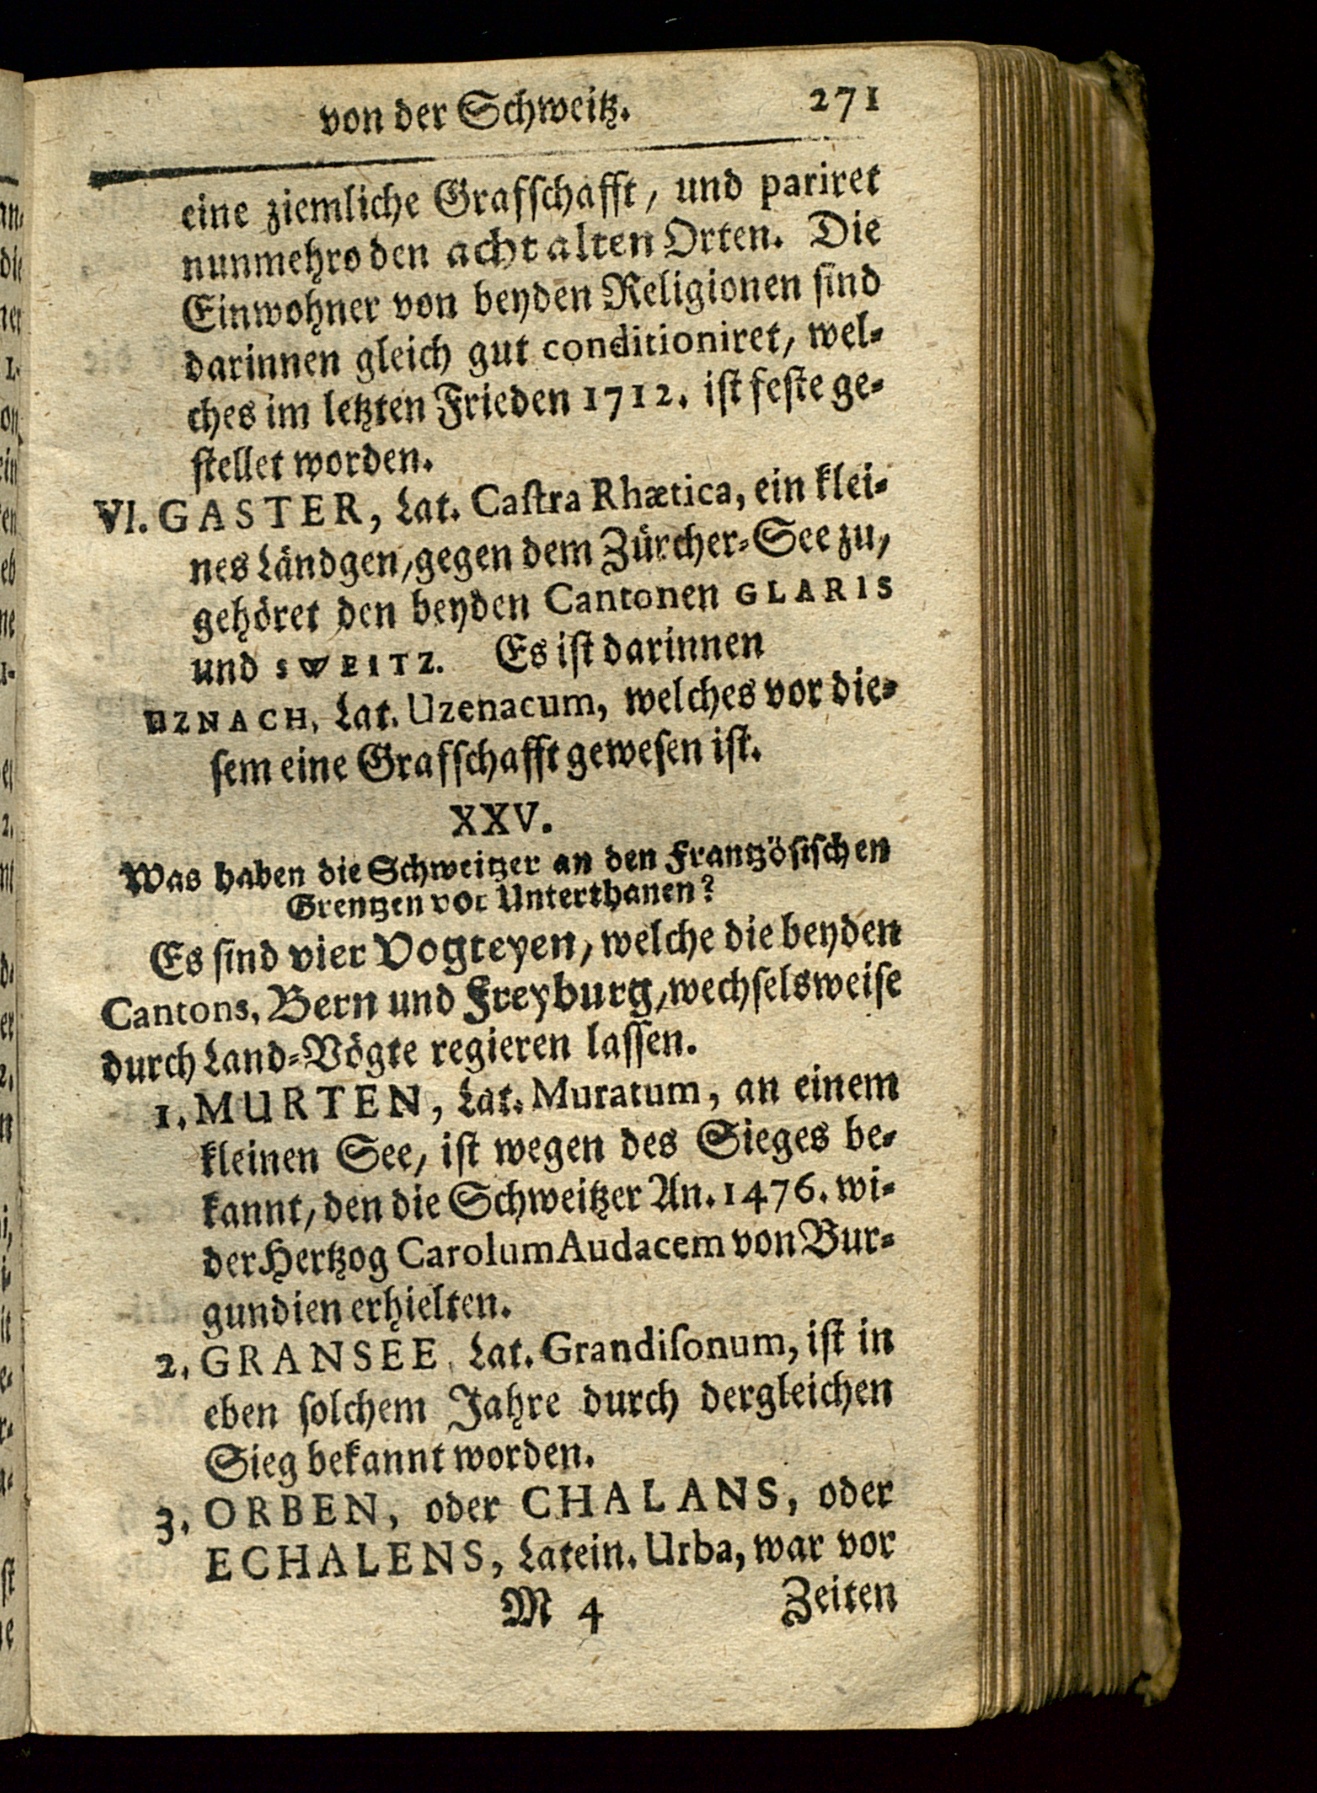 von der Schweitz. 271
eine ziemliche Grafschafft, und pariret
nunmehro den acht alten Orten. Die
Einwohner von beyden Religionen sind
darinnen gleich gut conditioniret, wel-
ches im letzten Frieden 1712. ist feste ge-
stellet worden.
VI. GASTER, Lat. Castra Rhætica, ein klei-
nes Ländgen, gegen dem Zürcher-See zu,
gehöret den beyden Cantonen GLARIS
und SWEITZ. Es ist darinnen
UZNACH, Lat. Uzenacum, welches vor die-
sem eine Grafschafft gewesen ist.
XXV.
Was haben die Schweitzer an den Frantzösischen
Grentzen vor Unterthanen?
Es sind vier Vogteyen, welche die beyden
Cantons, Bern und Freyburg, wechselsweise
durch Land-Vögte regieren lassen.
1. MURTEN, Lat. Muratum, an einem
kleinen See, ist wegen des Sieges be-
kannt, den die Schweitzer An. 1476. wi-
der Hertzog Carolum Audacem von Bur-
gundien erhielten.
2. GRANSEE, Lat. Grandisonum, ist in
eben solchem Jahre durch dergleichen
Sieg bekannt worden.
3. ORBEN, oder CHALANS, oder
ECHALENS, Latein. Urba, war vor
M 4 Zeiten